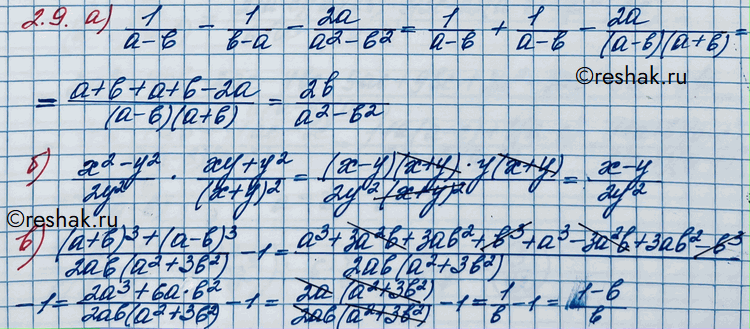 2.9. а) 1/(a-b) - 1/(b-a) - 2a/(a²-b²) = 1/(a-b) + 1/(a-b) - 2a/((a-b)(a+b)) =
©reshak.ru
= (a+b+a+b-2a)/((a-b)(a+b)) = 2b/(a²-b²)
б) (x²-y²)/(2y²) · (xy+y²)/((x+y)²) = ((x-y)(x+y)·y(x+y))/(2y²(x+y)²) = (x-y)/(2y²)
©reshak.ru
в) ((a+b)³+(a-b)³)/(2ab(a²+3b²)) - 1 = (a³+3a²b+3ab²+b³+a³-3a²b+3ab²-b³)/(2ab(a²+3b²))
- 1 = (2a³+6a·b²)/(2ab(a²+3b²)) - 1 = (2a(a²+3b²))/(2ab(a²+3b²)) - 1 = 1/b - 1 = (1-b)/b